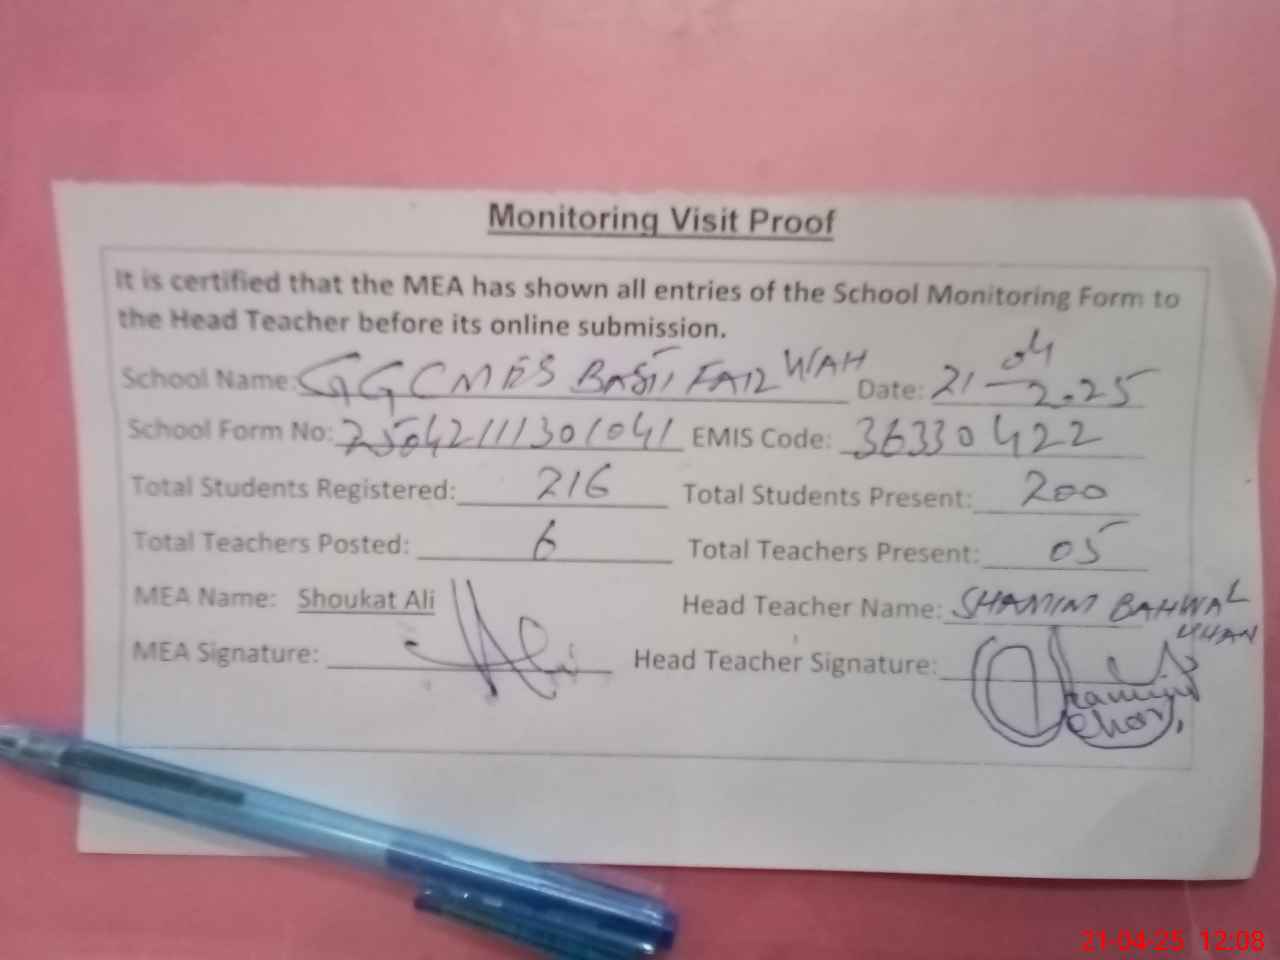 Monitoring Visit Proof
It is certified that the MEA has shown all entries of the School Monitoring Form to
the Head Teacher before its online submission.
School Name: GGCMES BASTI FAIZ WAH Date: 21-04-2.25
School Form No: 2504211301041 EMIS Code: 36330422
Total Students Registered: 216 Total Students Present: 200
Total Teachers Posted: 6 Total Teachers Present: 05
MEA Name: Shoukat Ali Head Teacher Name: SHAMIM BAHWAL KHAN
MEA Signature: Ali Head Teacher Signature:
21-04-25 12:08